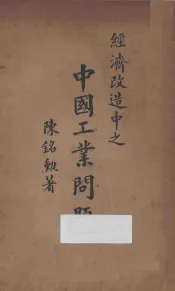 經濟改造中之
中國工業問題
陳銘勳著